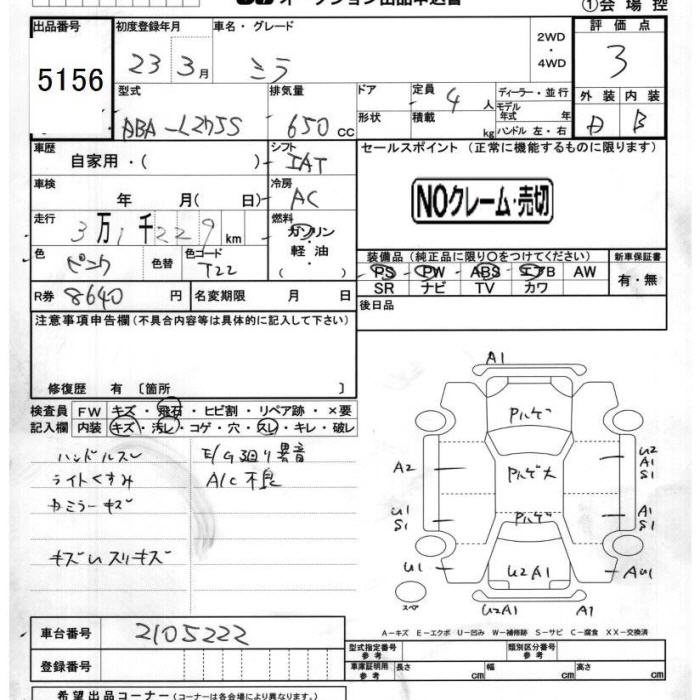 オークション出品申込書
①会場控
出品番号 初度登録年月 車名・グレード 2WD・4WD 評価点
5156 23 3月 ミラ 3
型式 排気量 ドア 定員 4人 ディーラー・並行 外装 内装
ABA-L275S 650cc 形状 積載 kg モデル年式 年 ハンドル 左・右 B
車歴 シフト セールスポイント (正常に機能するものに限ります)
自家用・( ) IAT
車検 年 月( 日) 冷房 AC NOクレーム・売切
走行 3万1千229km 燃料 ガソリン・軽油・( )
色 ピンク 色替 色コード T22 装備品(純正品に限り○をつけてください) 新車保証書
PS PW ABS エアB AW 有・無
SR ナビ TV カワ
R券 8640円 名変期限 月 日 後日品
注意事項申告欄(不具合内容等は具体的に記入して下さい)
修復歴 有〔箇所 〕
検査員 FW キズ・飛石・ヒビ割・リペア跡・×要
記入欄 内装 キズ・汚レ・コゲ・穴・スレ・キレ・破レ
ハンドルスレ E/G廻り異音
ライトくすみ A/C不良
ミラーキズ
スリキズ
A1
Pルゲ
A2 Pルゲ大 U2 A1 S1
U1 S1 Pルゲ A1 S1
U1 U2A1 AU1
スペア U2A1 A1
A-キズ E-エクボ U-凹み W-補修跡 S-サビ C-腐食 XX-交換済
車台番号 2105222 型式指定番号 参考 類別区分番号 参考
登録番号 車庫証明用 参考 長さ cm 幅 cm 高さ cm
希望出品コーナー(コーナーは各会場により異なります。)